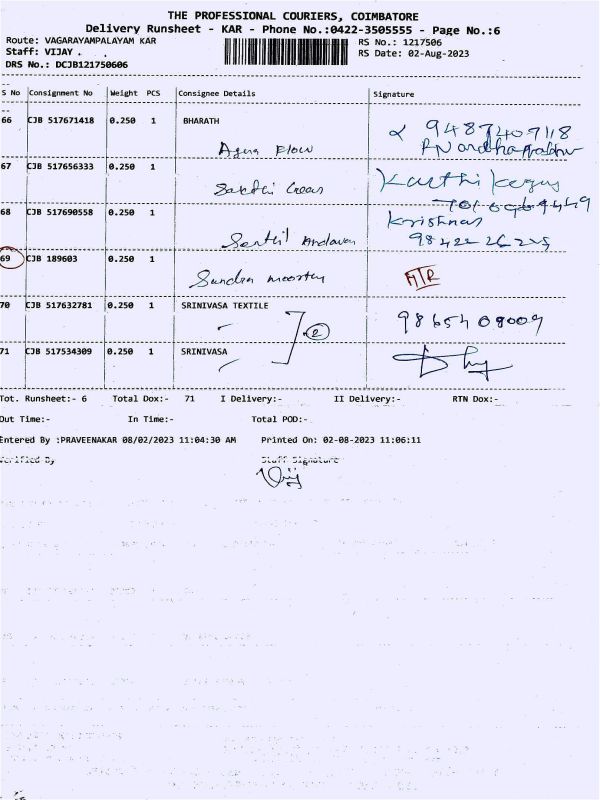 THE PROFESSIONAL COURIERS, COIMBATORE
Delivery Runsheet - KAR - Phone No.:0422-3505555 - Page No.:6
Route: VAGARAYAMPALAYAM KAR RS No.: 1217506
Staff: VIJAY . . RS Date: 02-Aug-2023
DRS No.: DCJB121750606
S No Consignment No Weight PCS Consignee Details Signature
66 CJB 517671418 0.250 1 BHARATH 9487407118
Aqua Flow
67 CJB 517656333 0.250 1 Karthi
Sakthi
68 CJB 517690558 0.250 1 Krishnan
Senthil Andavar
69 CJB 189603 0.250 1
Sundra moorthy
70 CJB 517632781 0.250 1 SRINIVASA TEXTILE 9865408009
2
71 CJB 517534309 0.250 1 SRINIVASA
Tot. Runsheet:- 6 Total Dox:- 71 I Delivery:- II Delivery:- RTN Dox:-
Out Time:- In Time:- Total POD:-
Entered By :PRAVEENAKAR 08/02/2023 11:04:30 AM Printed On: 02-08-2023 11:06:11
Verified By Staff Signature